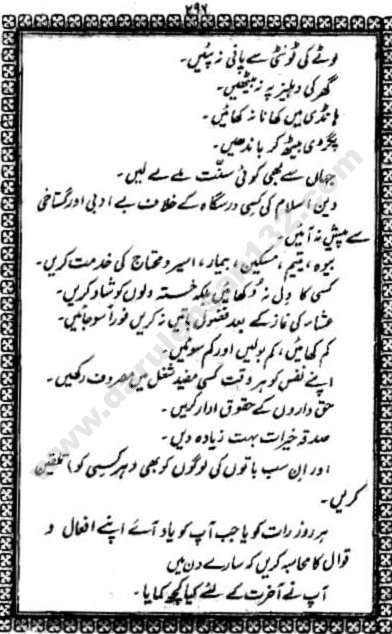 ۲۹۶
لوٹے کی ٹونٹی سے پانی نہ پئیں۔
گھر کی دہلیز پہ نہ بیٹھیں۔
ہانڈی میں کھانا نہ کھائیں۔
پگڑی بیٹھ کر باندھیں۔
جہاں سے بھی کوئی سنّت ملے لے لیں۔
دین اسلام کی کسی درسگاہ کے خلاف بے ادبی اور گستاخی
سے پیش نہ آئیں۔
بیوہ، یتیم، مسکین، بیمار، اسیر و محتاج کی خدمت کریں۔
کسی کا دِل نہ دُکھائیں بلکہ خستہ دلوں کو شاد کریں۔
عشار کی نماز کے بعد فضول باتیں نہ کریں فوراً سو جائیں۔
کم کھائیں، کم بولیں اور کم سوئیں۔
اپنے نفس کو ہر وقت کسی مفید شغل میں مصروف رکھیں۔
حق داروں کے حقوق ادا کریں۔
صدقہ خیرات بہت زیادہ دیں۔
اور اِن سب باتوں کی لوگوں کو بھی (ہر کسی کو) تلقین
کریں۔
ہر روز رات کو یا جب آپ کو یاد آئے اپنے افعال و
قوال کا محاسبہ کریں کہ سارے دن میں
آپ نے آخرت کے لئے کیا کچھ کمایا۔